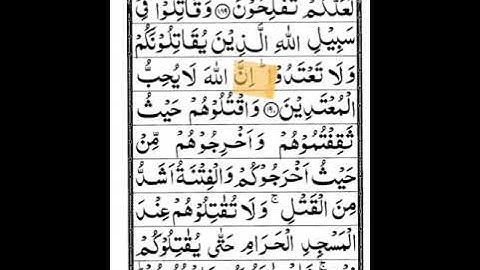 لَعَلَّكُمْ تُفْلِحُوْنَ ﴿۱۸۹﴾ وَقَاتِلُوْا فِیْ
سَبِیْلِ اللهِ الَّذِیْنَ یُقَاتِلُوْنَكُمْ
وَلَا تَعْتَدُوْا ؕ اِنَّ اللهَ لَا یُحِبُّ
الْمُعْتَدِیْنَ ﴿۱۹۰﴾ وَاقْتُلُوْهُمْ حَیْثُ
ثَقِفْتُمُوْهُمْ وَاَخْرِجُوْهُمْ مِّنْ
حَیْثُ اَخْرَجُوْكُمْ وَالْفِتْنَةُ اَشَدُّ
مِنَ الْقَتْلِ ۚ وَلَا تُقٰتِلُوْهُمْ عِنْدَ
الْمَسْجِدِ الْحَرَامِ حَتّٰی یُقٰتِلُوْكُمْ